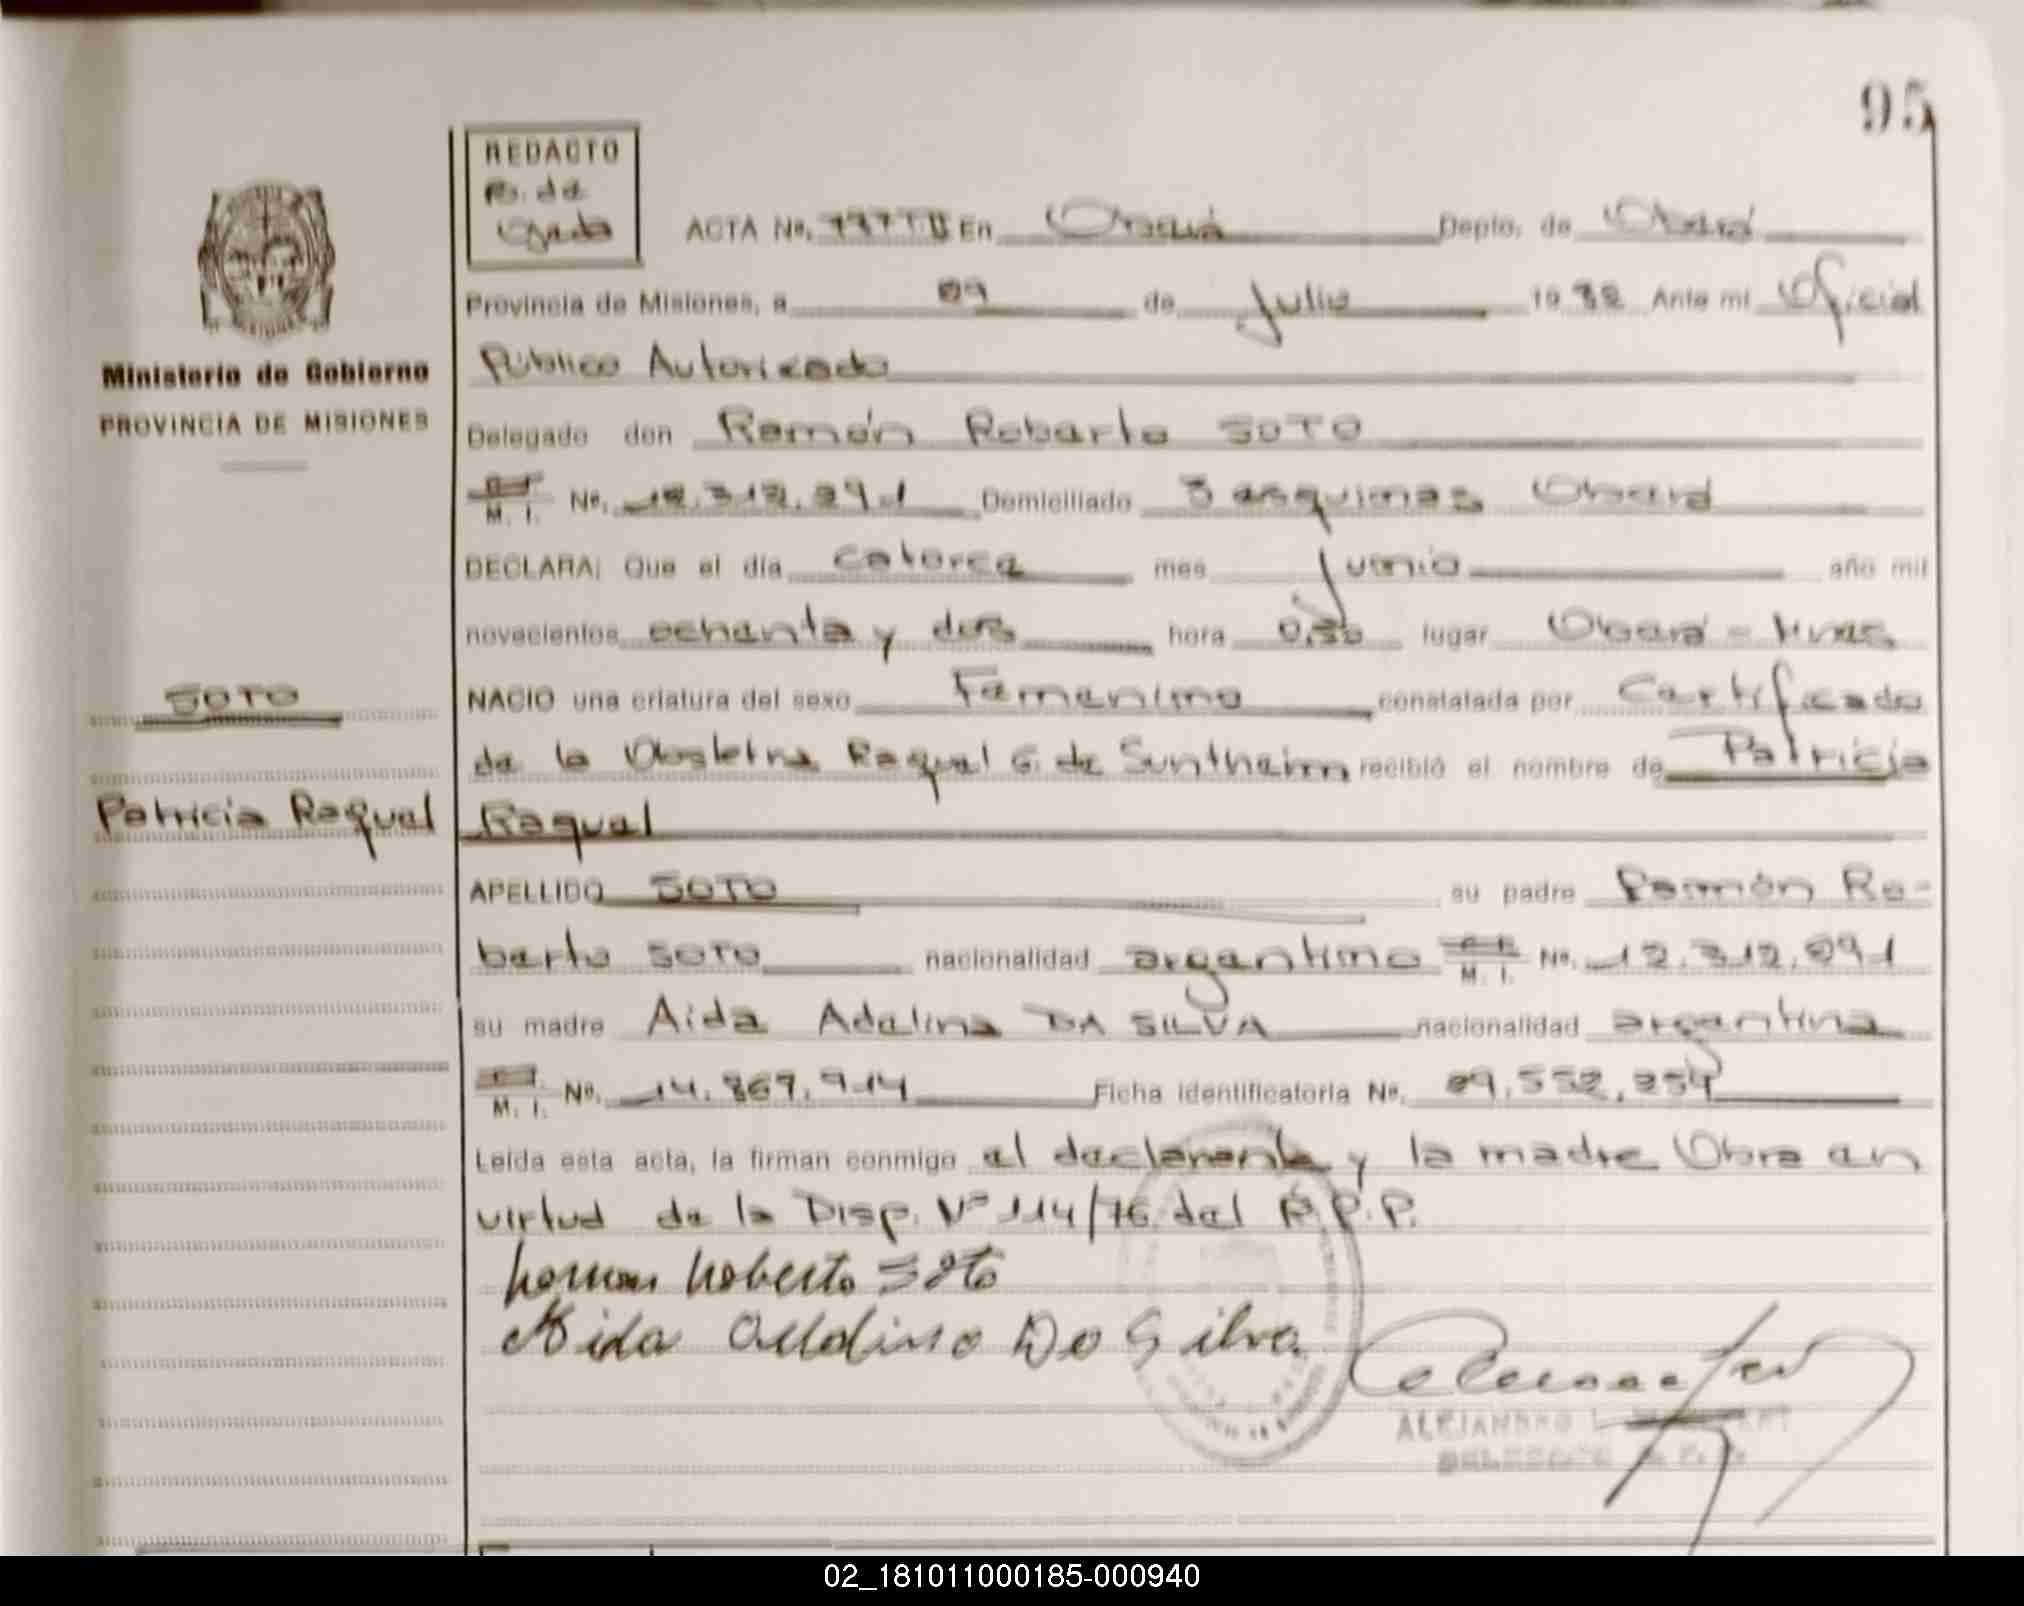 95
REDACTO
B. de
ACTA No. 797 T II En Oberá Depto. de Oberá
Provincia de Misiones, a 09 de Julio 1982 Ante mí Oficial
Público Autorizado
Ministerio de Gobierno
PROVINCIA DE MISIONES
Delegado don Ramón Roberto SOTO
M. I. No. 12.312.291 Domiciliado 3 esquinas Oberá
DECLARA: Que el día catorce mes Junio año mil
novecientos ochenta y dos hora 0,30 lugar Oberá - Mnes.
SOTO
NACIO una criatura del sexo Femenino constatada por Certificado
de la Obstetra Raquel G. de Suntheim recibió el nombre de Patricia
Patricia Raquel
Raquel
APELLIDO SOTO su padre Ramón Ro-
berto SOTO nacionalidad argentino M. I. No. 12.312.291
su madre Aida Adelina DA SILVA nacionalidad argentina
M. I. No. 14.869.914 Ficha identificatoria No. 29.552.254
Leída esta acta, la firman conmigo el declarante y la madre Obra en
virtud de la Disp. Nº 114/76 del R.P.P.
Ramon Roberto Soto
Aida Adelina Da Silva
ALEJANDRO L.
DELEGADO R. P.
02_181011000185-000940